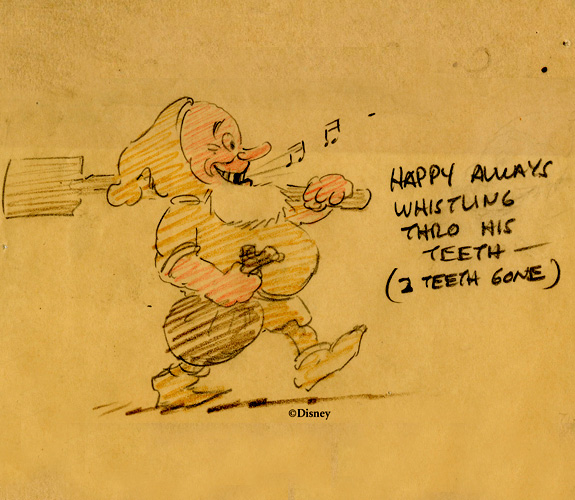 HAPPY ALWAYS
WHISTLING
THRO HIS
TEETH —
(2 TEETH GONE)
©Disney